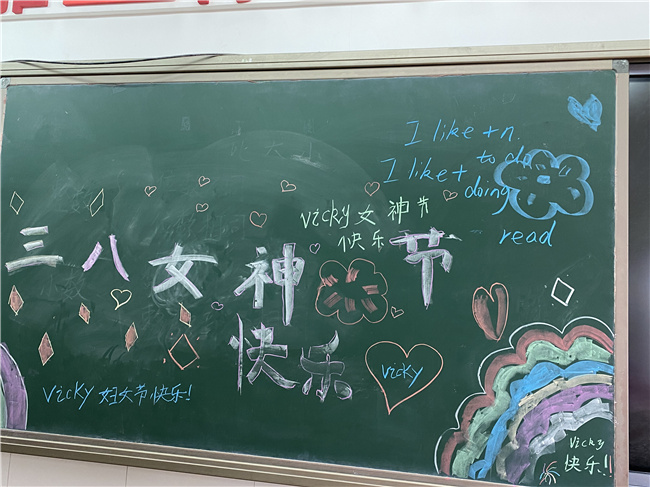 I like + n.
I like + to do
doing
read
vicky 女神节
快乐
三八女神节
快乐
vicky
vicky 妇女节快乐!
Vicky
快乐!!